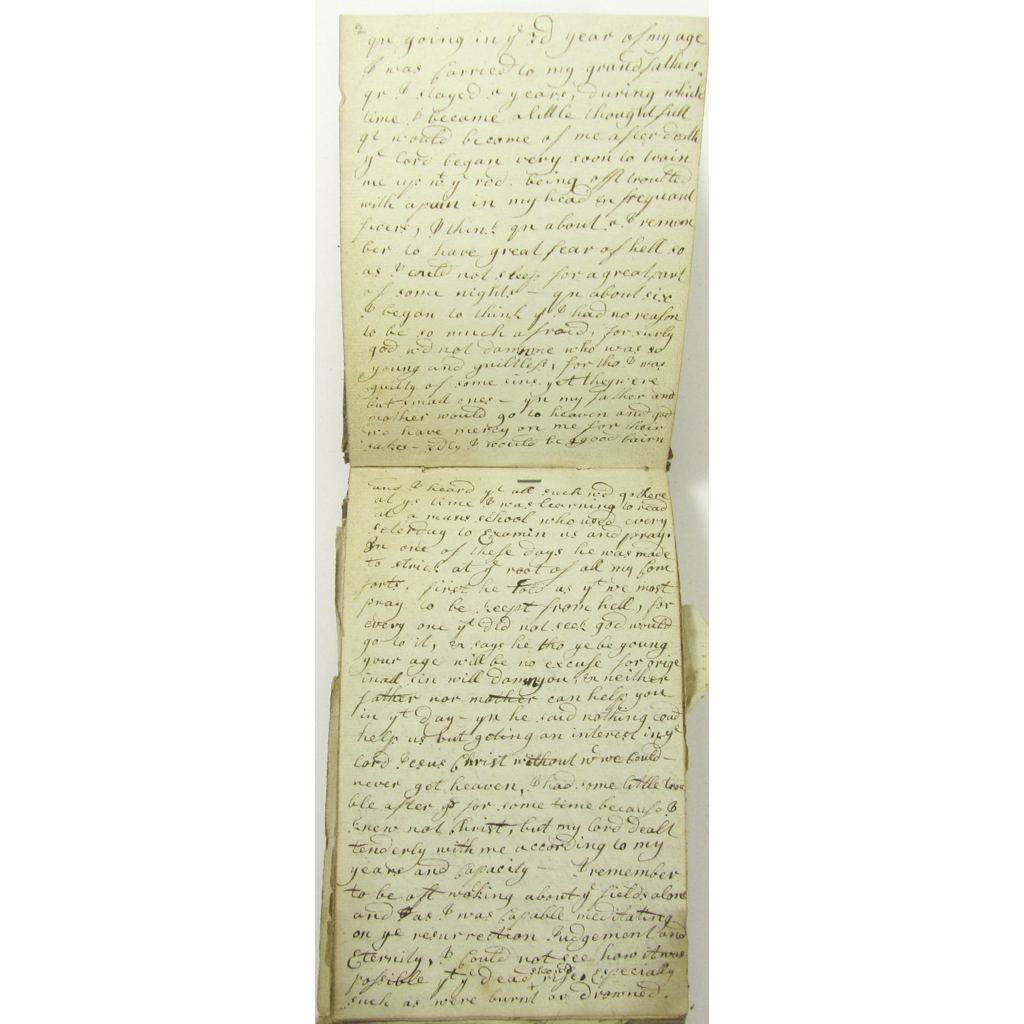 2
qn going in ye 3d year of my age
I was carried to my grandfathers,
qr I stayed years, during which
time I became a little thoughtfull
qt would become of me after death
ye lord began very soon to train
me up wt ye rod. being oft troubled
with a pain in my head & frequant
fivers, I think qn about I remem
ber to have great fear of hell so
as I could not sleep for a great part
of some nights — qn about six
I began to think yt I had no reason
to be so much afraid, for surly
god wd not damn me who was so
young and guiltless, for tho I was
guilty of some sins yet they were
but small ones — yn my father and
mother would go to heaven and god
wd have mercy on me for their
sakes — 3dly I would be a good bairn
and I heard yt all such wd go there
at ys time I was learning to read
at a mans school who used every
seterday to examin us and pray.
In one of these days he was made
to strick at ye root of all my com
forts, first he told us yt we most
pray to be keept from hell, for
every one yt did not seek god would
go to it, & says he tho ye be young
your age will be no excuse for orige
inall sin will damn you, & neither
father nor mother can help you
in yt day — yn he said nothing coud
help us but geting an interest in ye
lord Jesus Christ without wc we could —
never get heaven, I had some little trou
ble after ys for some time because I
knew not Christ, but my lord dealt
tenderly with me according to my
years and capacity — I remember
to be oft waking about ye fields alone
and as I was capable meditating
on ye resurrection Judgement and
Eternity, I could not see how it was
possible yt ye dead should rise, especially
such as were burnt or drowned.